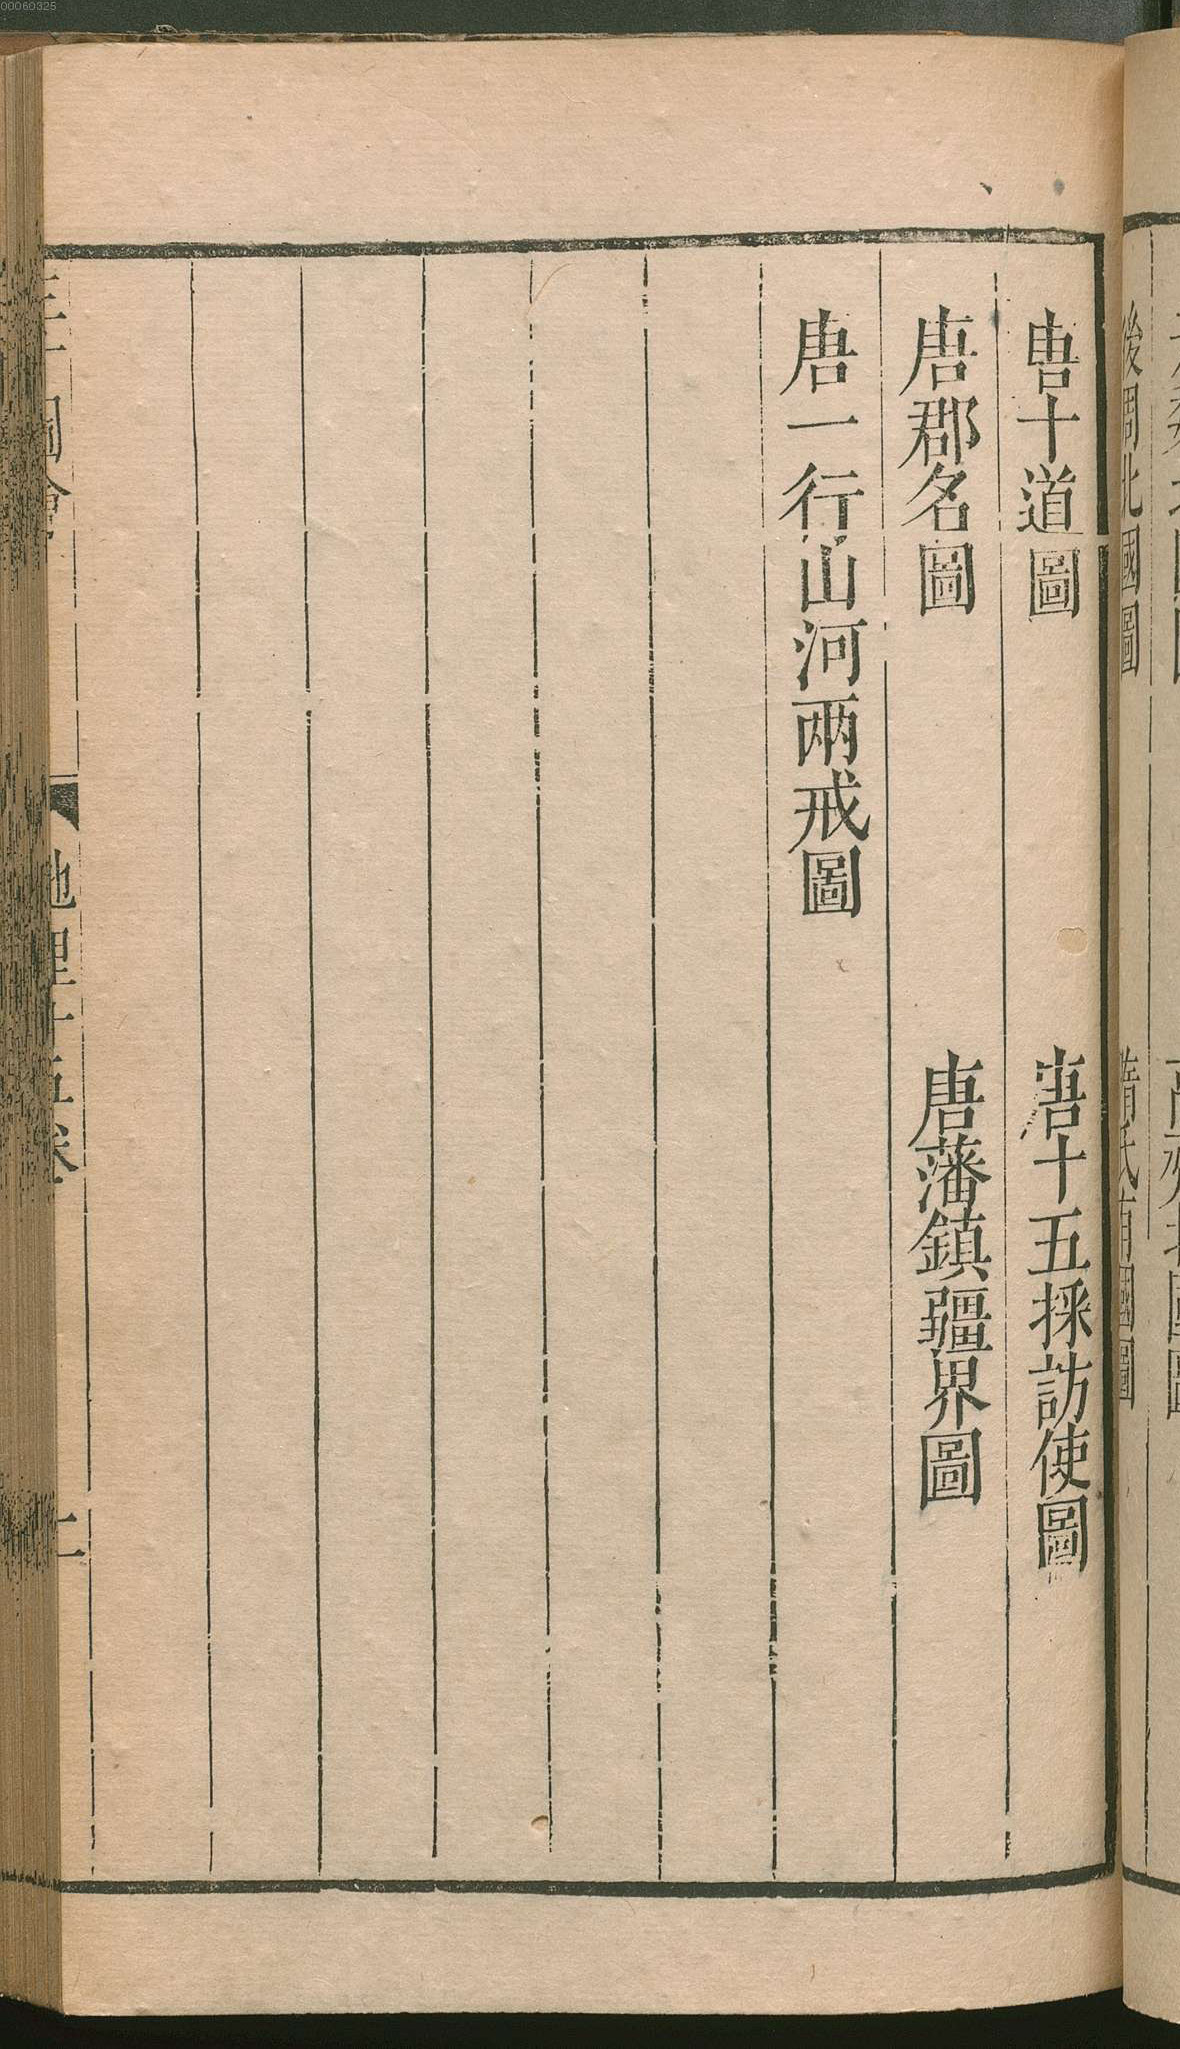 後周北國圖
隋氏有國圖
唐十道圖
唐十五採訪使圖
唐郡名圖
唐藩鎮疆界圖
唐一行山河兩戒圖
圖會
地理十五卷
二
00060325